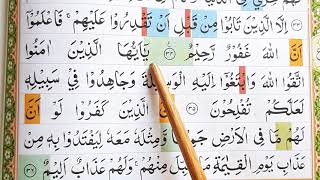 إِلَّا الَّذِينَ تَابُوا مِنْ قَبْلِ أَنْ تَقْدِرُوا عَلَيْهِمْ ۚ فَاعْلَمُوا
أَنَّ اللَّهَ غَفُورٌ رَحِيمٌ ﴿٣٤﴾ يَا أَيُّهَا الَّذِينَ آمَنُوا
اتَّقُوا اللَّهَ وَابْتَغُوا إِلَيْهِ الْوَسِيلَةَ وَجَاهِدُوا فِي سَبِيلِهِ
لَعَلَّكُمْ تُفْلِحُونَ ﴿٣٥﴾ إِنَّ الَّذِينَ كَفَرُوا لَوْ أَنَّ
لَهُمْ مَا فِي الْأَرْضِ جَمِيعًا وَمِثْلَهُ مَعَهُ لِيَفْتَدُوا بِهِ مِنْ
عَذَابِ يَوْمِ الْقِيَامَةِ مَا تُقُبِّلَ مِنْهُمْ ۖ وَلَهُمْ عَذَابٌ أَلِيمٌ ﴿٣٦﴾